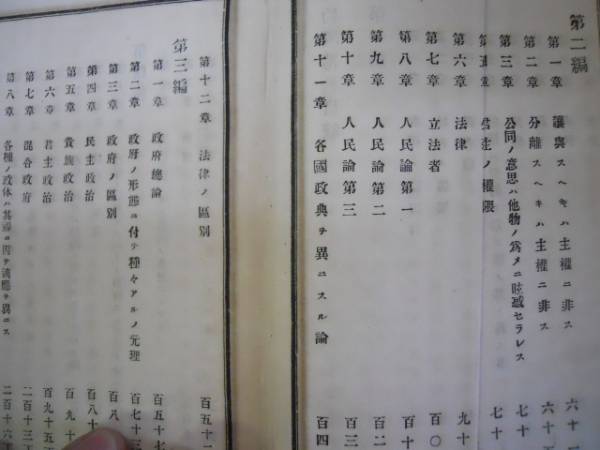 第二編
第一章 讓與スヘキハ主權ニ非ス 六十
第二章 分離スヘキハ主權ニ非ス 六十
第三章 公同ノ意思ハ他物ノ爲メニ眩惑セラレス 七十
第五章 君主ノ權限 七十
第六章 法律 九十
第七章 立法者 百〇
第八章 人民論第一 百十
第九章 人民論第二 百二
第十章 人民論第三 百三
第十一章 各國政典ヲ異ニスル論 百四
第十二章 法律ノ區別 百五十
第三編
第一章 政府總論 百五十七
第二章 政府ノ形態ニ付テ種々アルノ元理 百七十三
第三章 政府ノ區別 百八
第四章 民主政治 百八十
第五章 貴族政治 百九十
第六章 君主政治 百九十五
第七章 混合政府 二百十三
第八章 各種ノ政体ハ其 二百十六